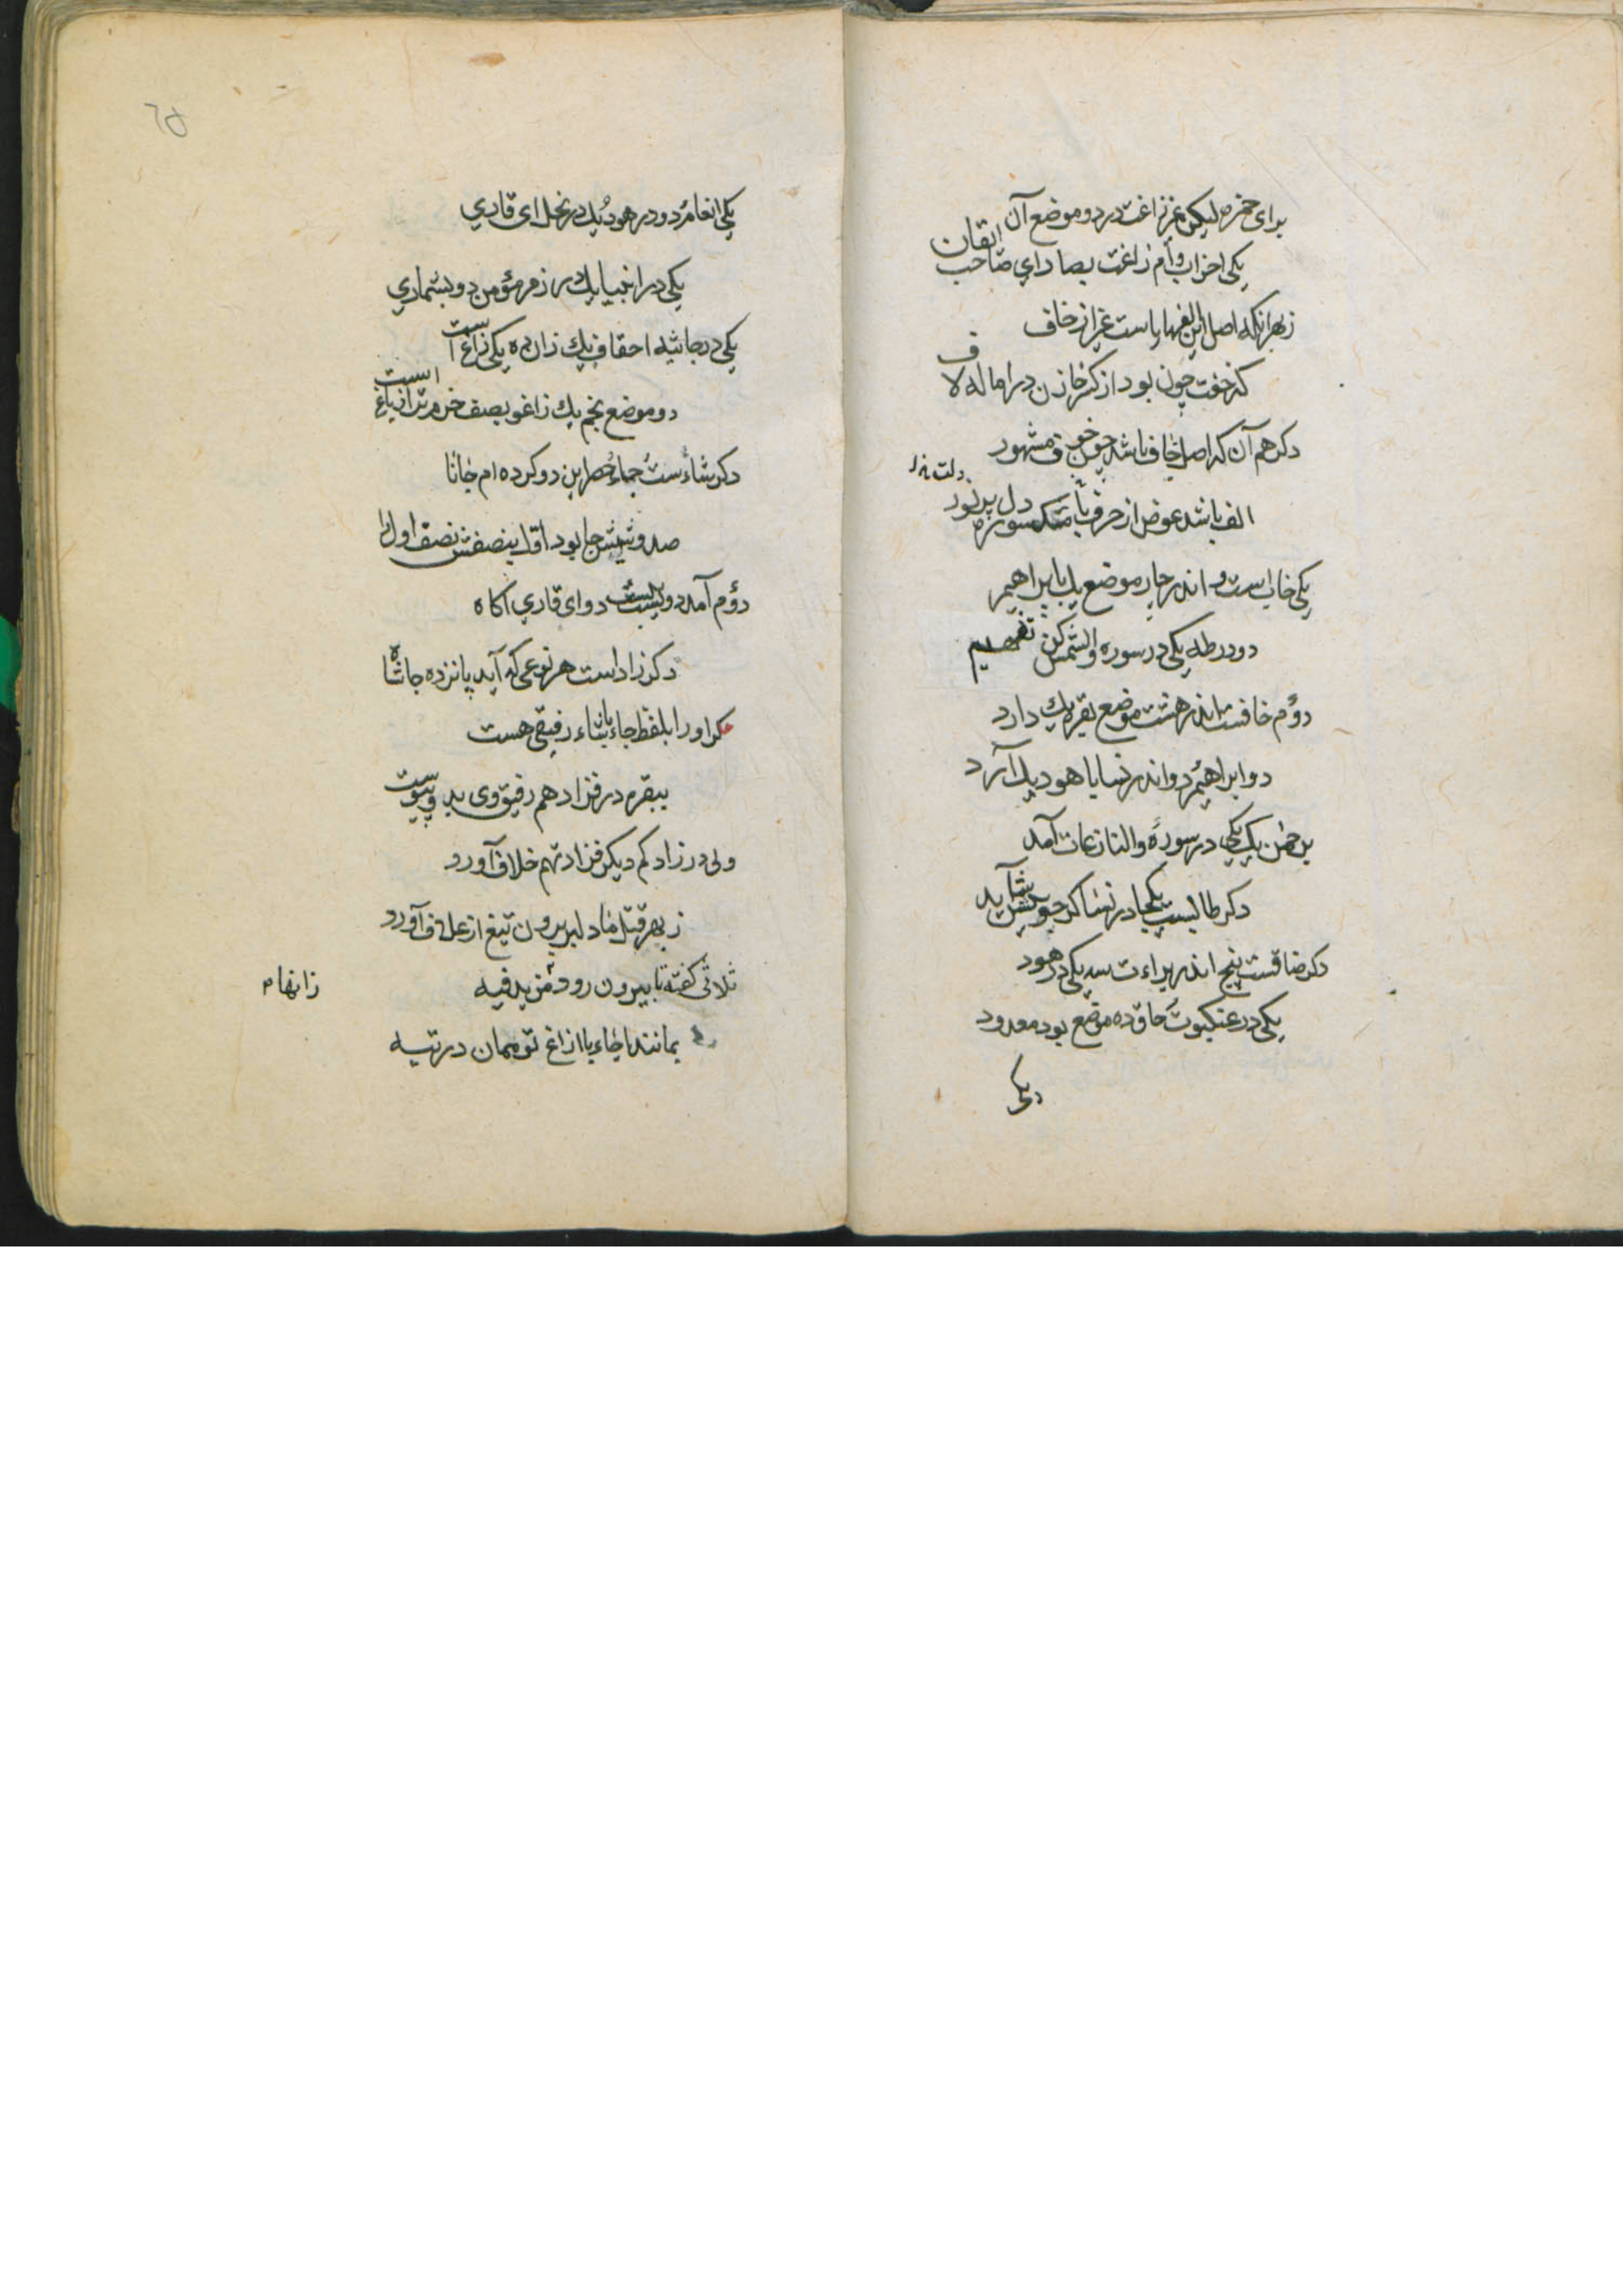 برای حمزه لیکن غیر زاغت در دو موضع آن
یکی احزاب وام زاغت بصاد ای صاحب اتقان
زبهر آنکه اصل این الفها یاست غیر از خاف
که خفت چون بود از کسر خازن در اماله لاف
دکر هم آن که اصل خاف باشد چون خوف مشهور
الف باشد عوض از حرف با مکسوره دل پر نور
یکی خاب است و اندر چار موضع یک بابراهیم
دو در طه یکی در سوره والشمس کن تفهیم
دؤم خافست اندر هشت موضع بقره یک دارد
دو ابراهیم دو اندر نسا یا هود یک آرد
برحمن یک یکی در سورهٔ والنازعات آمد
دکر طابست یکجا در نسا کر جویش شاید
دکر ضاقست پنج اندر براءت سه یکی در هود
یکی در عنکبوت حاق ده موضع بود معدود
یکی
یکی انعام دو در هود یک در نحل ای قاری
یکی در انبیا یک در زمر مؤمن دو بشماری
یکی در جاثیه احقاف یک زان ده یکی زاغ است
دو موضع نجم یک زاغو بصف خرم تر از باغ است
دکر شاء ست جاء حصر این دو کرده ام جانا
صد و شیش جا بود اول بنصفش نصف اول را
دؤم آمد دویست بیست دو ای قاری آکاه
دکر زاد است هر نوعی که آید پانزده جا شاه
مکر او را بلفظ جاء یا شاء رفیقی هست
ببقره در فزاد هم رفیق وی بد و پیوست
ولی در زاد کم دیکر فزادتهم خلاف آورد
زبهر قتل دلیر بیرون تیغ از غلاف آورد
ثلاثی کفته تا بیرون رود مزید فیه
بمانند اجاء یا ازاغ تو ممان در تیه